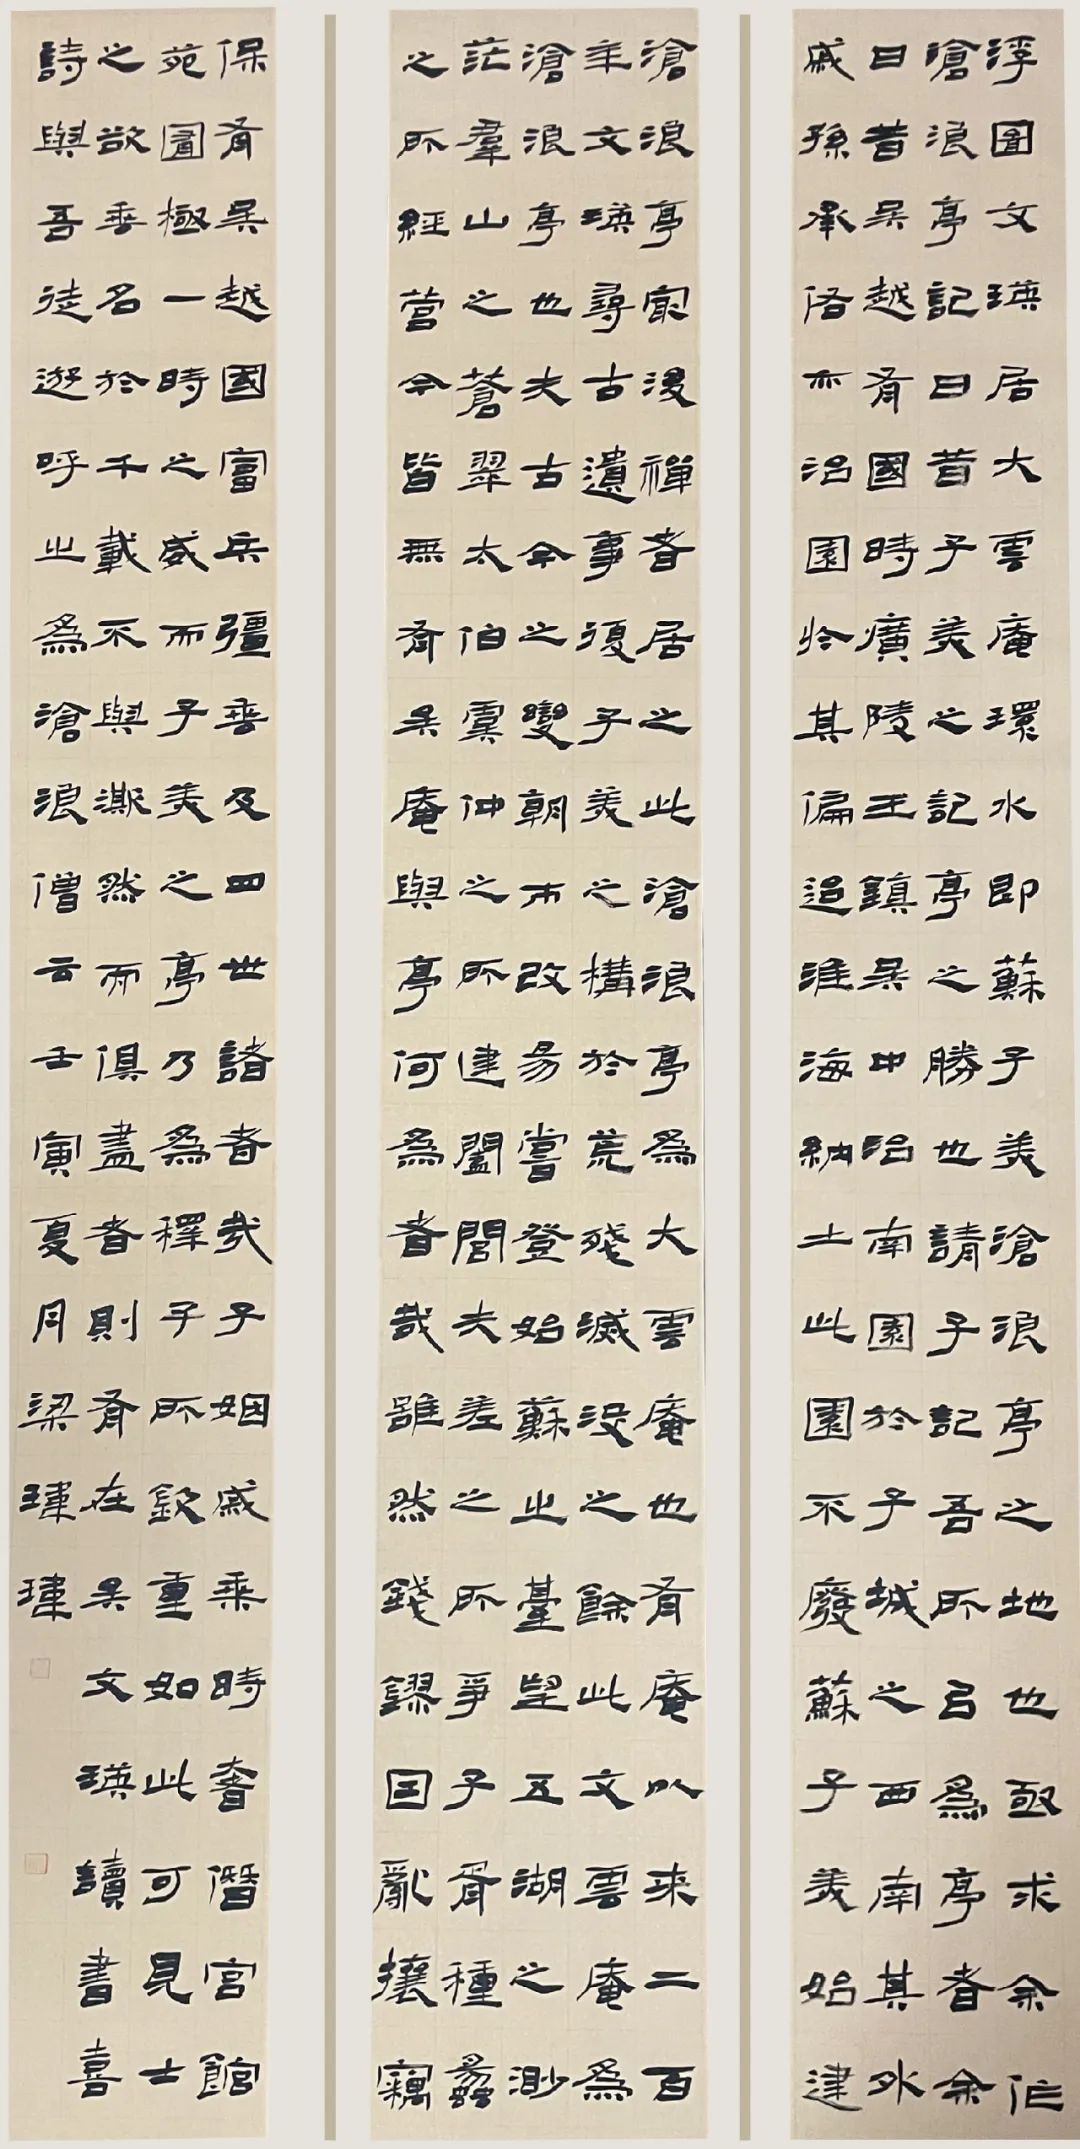 浮圖文瑛居大雲庵環水即蘇子美滄浪亭之地也亟求余作
滄浪亭記曰昔子美之記記亭之勝也請子記吾所以為亭者余
曰昔吳越有國時廣陵王鎮吳中治南園於子城之西南其外
戚孫承佑亦治園於其偏迨淮海納土此園不廢蘇子美始建
滄浪亭最後禪者居之此滄浪亭為大雲庵也有庵以來二百
年文瑛尋古遺事復子美之構於荒殘滅沒之餘此文雲庵為
滄浪亭也夫古今之變朝市改易嘗登姑蘇之臺望五湖之渺
茫羣山之蒼翠太伯虞仲之所建闔閭夫差之所爭子胥種蠡
之所經營今皆無有矣庵與亭何為者哉雖然錢鏐因亂攘竊
保有吳越國富兵彊垂及四世諸者哉子姻戚乘時奢僭宮館
苑圖極一時之盛而子美之亭乃為釋子所欽重如此可見士
之欲垂名於千載不與澌然而俱盡者則有在矣文瑛讀書喜
詩與吾徒遊呼之為滄浪僧云壬寅夏月梁